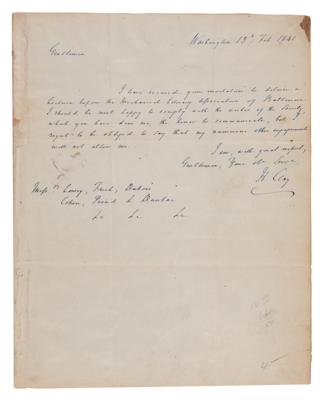 Washington 13th Feb. 1841
Gentlemen
I have received your invitation to deliver a
Lecture before the Mechanical Library Association of Baltimore
I should be most happy to comply with the wishes of the Society
which you have done me the honor to communicate, but I
regret to be obliged to say that my numerous other engagements
will not allow me.
I am, with great respect,
Gentlemen, Your ob. Serv.
H Clay
Mess
Cohen, &
&c &c &c